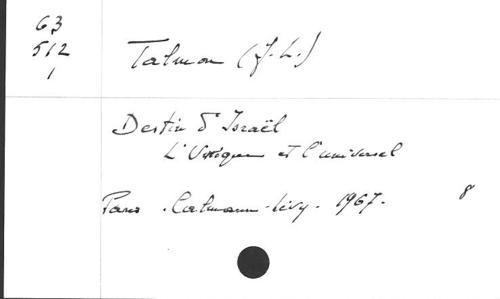 63
512
1
Talmon (J. L.)
Destin d'Israël
L'Unique et l'universel
Paris. Calmann-Lévy. 1967. 8